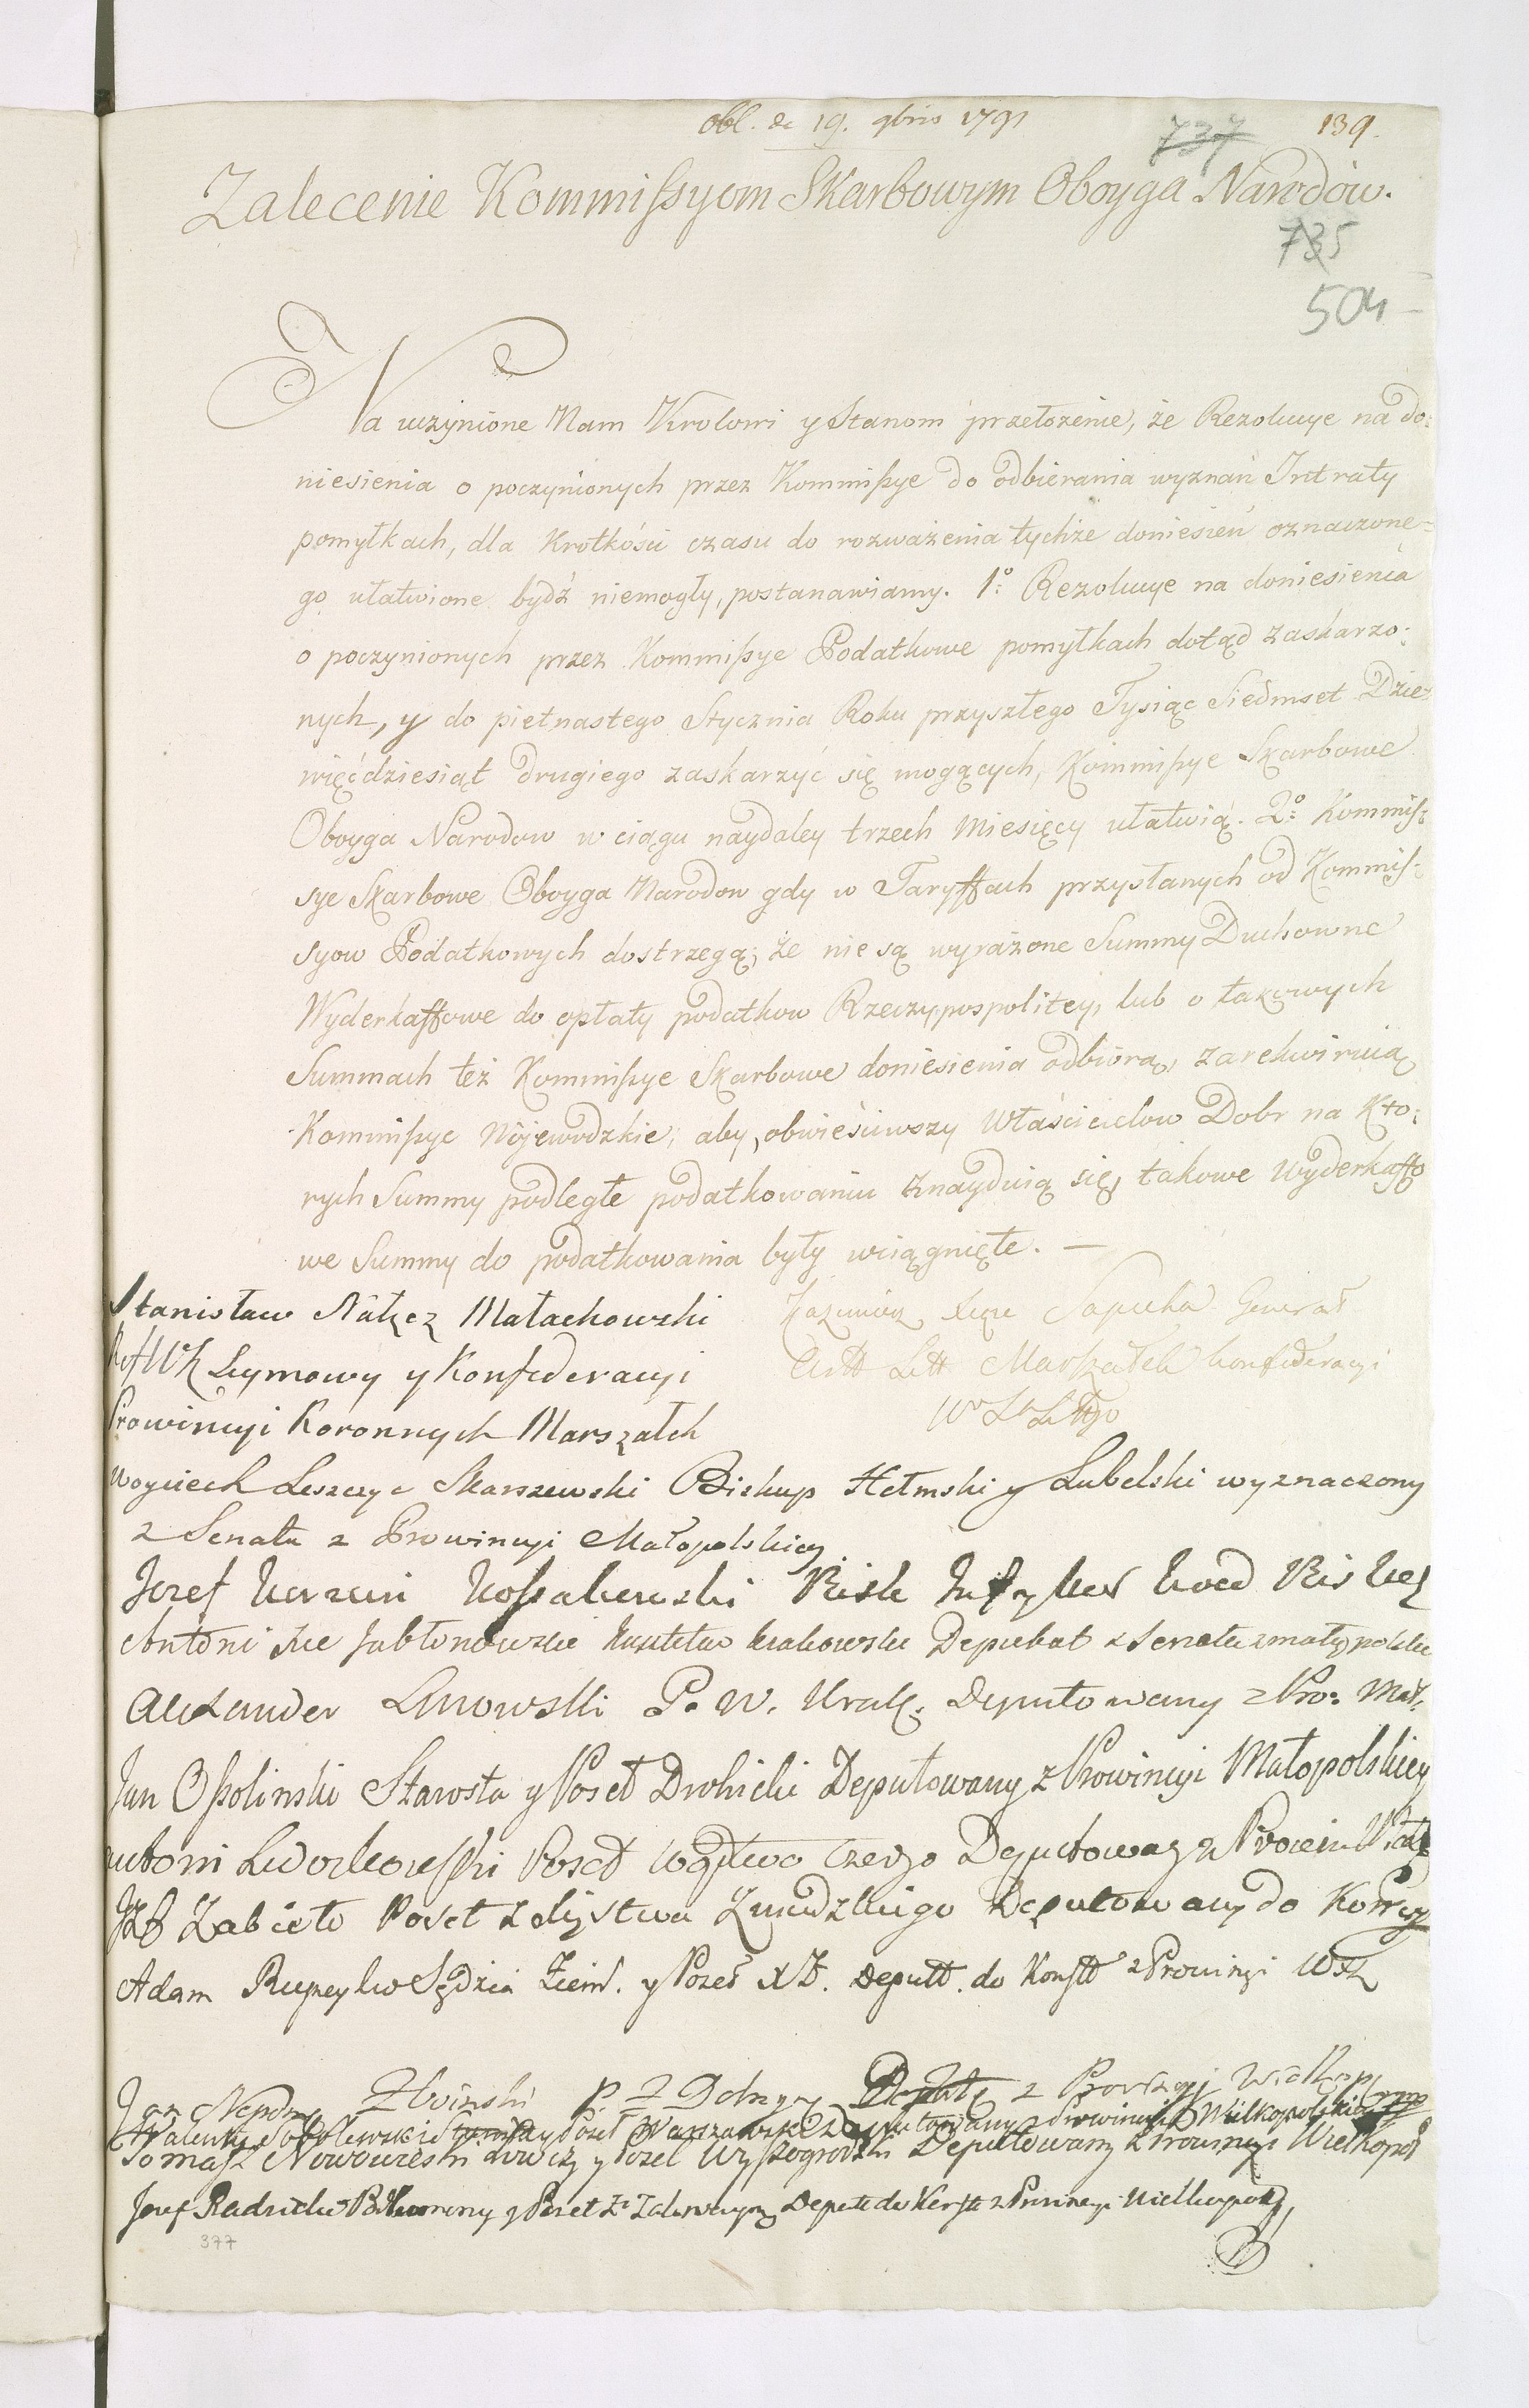 obl. de 19. 9bris 1791
737 139.
Zalecenie Kommissyom Skarbowym Oboyga Narodow.
735
504
Na uczynione Nam Krolowi y Stanom przełożenie, że Rezolucye na do:
niesienia o poczynionych przez Kommissye do odbierania wyznań Intraty
pomyłkach, dla Krotkości czasu do rozważenia tychże doniesień oznaczone=
go ułatwione bydź niemogły, postanawiamy. 1º Rezolucye na doniesienia
o poczynionych przez Kommissye Podatkowe pomyłkach dotąd zaskarżo:
nych, y do pietnastego Stycznia Roku przyszłego Tysiąc Siedmset Dzie=
więćdziesiąt drugiego zaskarżyć się mogących, Kommissye Skarbowe
Oboyga Narodow w ciągu naydaley trzech Miesięcy ułatwią. 2º Kommis:
sye Skarbowe Oboyga Narodow gdy w Taryffach przysłanych od Kommis:
syow Podatkowych dostrzegą, że nie są wyrażone Summy Duchowne
Wyderkaffowe do opłaty podatkow Rzeczypospolitey, lub o takowych
Summach też Kommissye Skarbowe doniesienia odbiorą, zarekwiruią
Kommissye Wojewodzkie, aby, obwieściwszy Właścicielow Dobr na Kto:
rych Summy podległe podatkowaniu znayduią się, takowe Wyderkaffo
we Summy do podatkowania były wciągnięte. —
Stanisław Nałęcz Małachowski
Seymowy y Konfederacyi
Prowincyi Koronnych Marszałek
Kazimierz Sapieha Generał
Artt Litt Marszałek Konfederacyi
Woyciech Leszczyc Skarszewski Biskup Hełmski y Lubelski wyznaczony
z Senatu z Prowincyi Małopolskiey
Jozef Korwin Kossakowski
Antoni Jabłonowski Krakowski Deputat z Senatu z małopolski
Alexander Linowski P. W. Krak. Deputowany z Pro: Mał.
Jan Ossolinski Starosta y Poseł Drohicki Deputowany z Prowincyi Małopolskiey
Poseł Deputowany
Zabiełło Poseł z Xięstwa Zmudzkiego Deputowany do Konst
Adam Rupeyko Sędzia Ziem. y Poseł X Z. Deputt. do Konstt z Prowincyi
Jan Nepom Zboinski P. Z Dobrzyn z Prowincyi Wielkop
Walenty Sobolewski y Poseł Warszawski Deputowany z Prowincyi Wielkopolskiey
Tomasz Nowowieski Łowczy y Poseł Wyszogrodzki Deputowany z Prowincyi Wielkopol
Jozef Radzicki Podkomorzy y Poseł Zi Zakroczym Deput do Konstt z Prowincyi Wielkopols
377